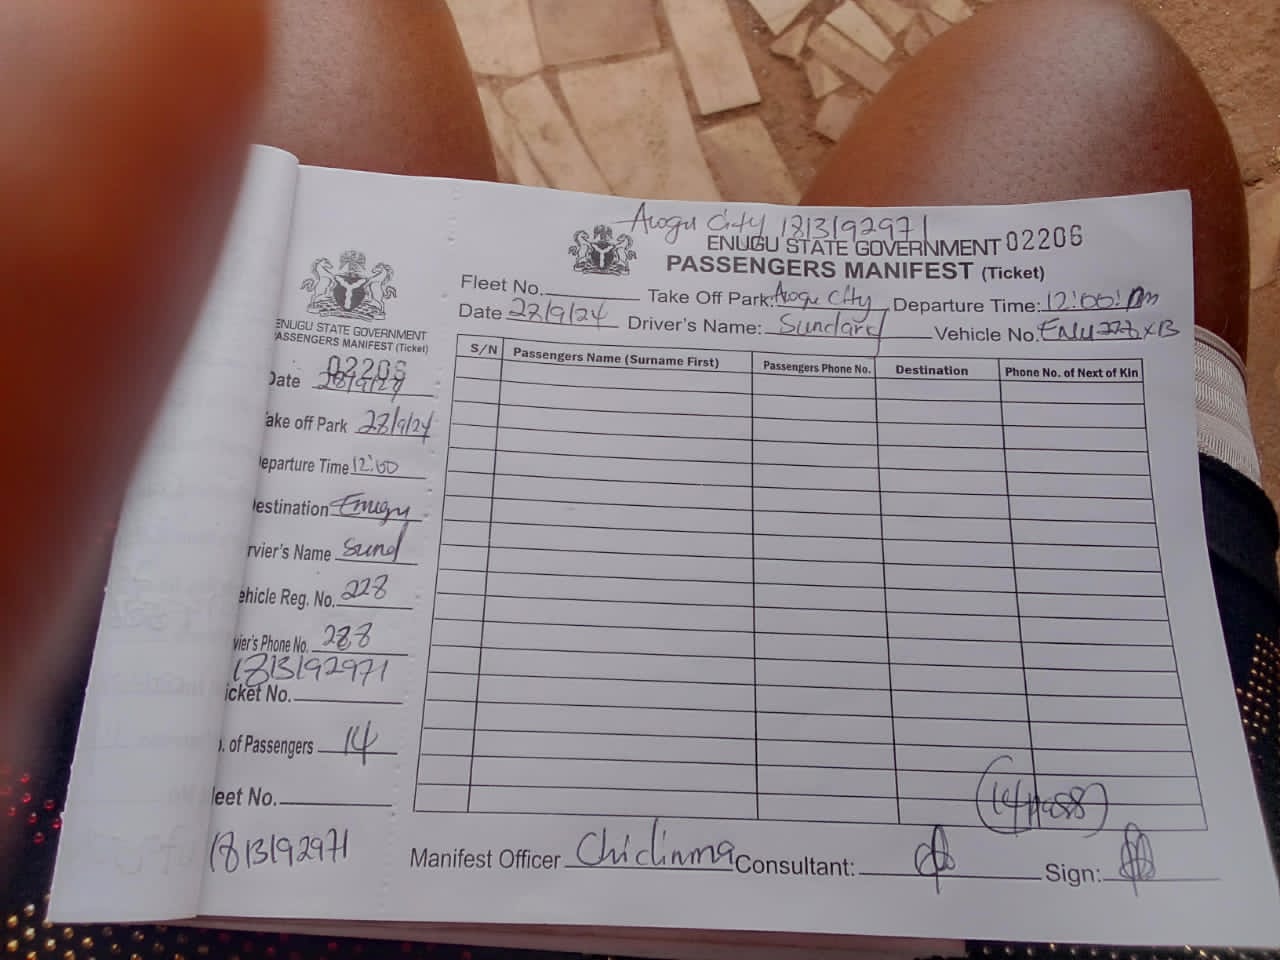 Arogu City 1813192971
ENUGU STATE GOVERNMENT 02206
PASSENGERS MANIFEST (Ticket)
Fleet No. Take Off Park: Arogu City Departure Time: 12:00: pm
Date 28/9/24 Driver's Name: Sundard Vehicle No.
S/N Passengers Name (Surname First) Passengers Phone No. Destination Phone No. of Next of Kin
(14pass)
Manifest Officer Chidinma Consultant: Sign:
ENUGU STATE GOVERNMENT
PASSENGERS MANIFEST (Ticket)
02206
Date 28/9/24
ake off Park 28/9/24
eparture Time 12:00
estination Enugu
rvier's Name Sund
ehicle Reg. No. 228
vier's Phone No. 288
1813192971
icket No.
. of Passengers 14
leet No.
1813192971